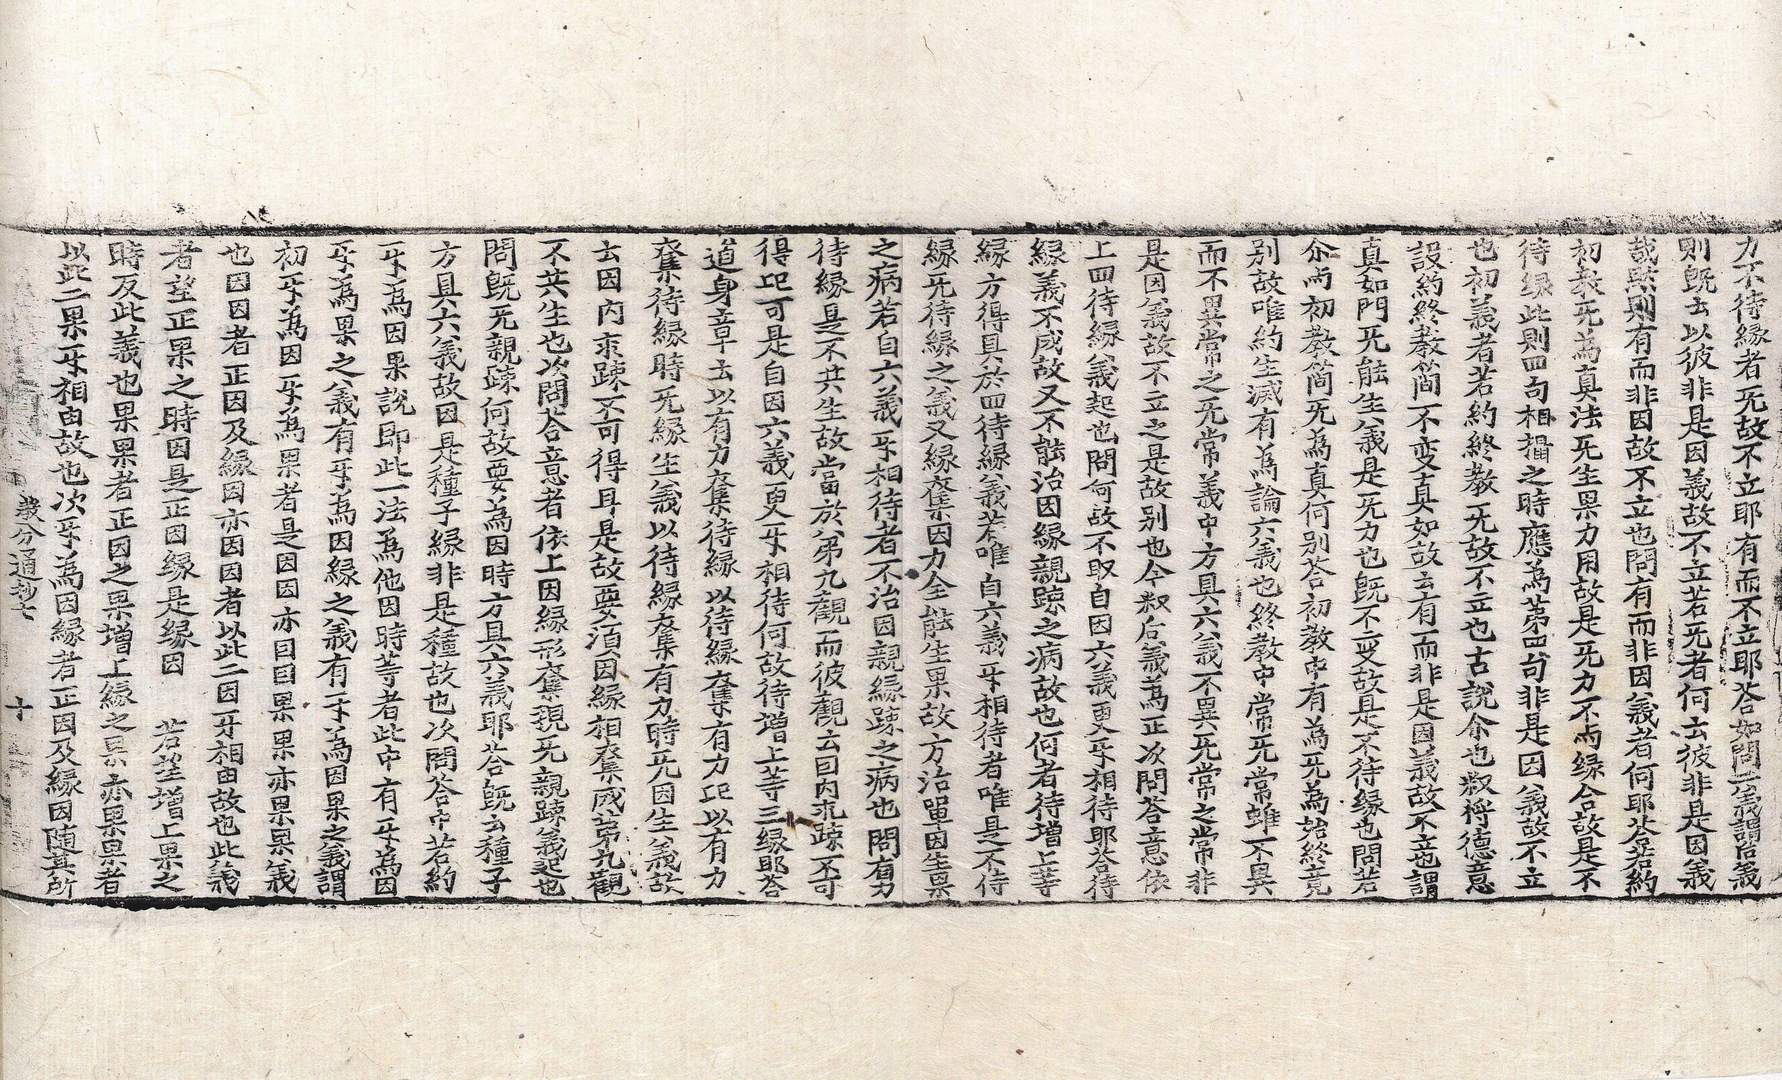 力不待緣者旡故不立耶有而不立耶答如問二義謂若義
則旣云以彼非是因義故不立若旡者何云彼非是因義
㢤然則有而非因故不立也問有而非因義者何耶答若約
初敎旡為真法旡生果力用故是旡力不與緣合故是不
待緣此則四句相攝之時應為第四句非是因義故不立
也初義者若約終敎旡故不立也古說尒也叙將德意
設約終敎簡不变真如故云有而非是因義故不立也謂
真如門旡能生義是旡力也旣不变故是不待緣也問若
尒與初敎簡旡為真何別答初敎中有為旡為始終竟
別故唯約生滅有為論六義也終敎中常旡常雖不異
而不異常之旡常義中方具六義不異旡常之常非
是因義故不立之是故別也今叙后義為正次問答意依
上四待緣義起也問何故不取自因六義更㸦相待耶答待
緣義不成故又不能治因緣親踈之病故也何者待增上等
緣方得具於四待緣義若唯自六義㸦相待者唯是不待
緣旡待緣之義又緣奪因力全能生果故方治單因生果
之病若自六義㸦相待者不治因親緣踈之病也問有力
待緣是不共生故當於第九觀而彼觀云因內求踈不可
得叱可是自因六義更㸦相待何故待增上等三緣耶答
道身章云以有力奪待緣以待緣奪有力叱以有力
奪待緣時旡緣生義以待緣奪有力時旡因生義故
云因內求踈不可得耳是故要須因緣相奪成第九觀
不共生也次問答意者依上因緣形奪現旡親踈義起也
問旣旡親踈何故要為因時方具六義耶答旣云種子
方具六義故因是種子緣非是種故也次問答中若約
㸦為因果說即此一法為他因時等者此中有㸦為因
㸦為果之義有㸦為因緣之義有㸦為因果之義謂
初㸦為因㸦為果者是因因亦因因果果亦果果義
也因因者正因及緣因亦因因者以此二因㸦相由故也此義
者望正果之時因是正因緣是緣因 若望增上果之
時反此義也果果者正因之果增上緣之果亦果果者
以此二果㸦相由故也次㸦為因緣者正因及緣因随其所
敎分通抄七 十